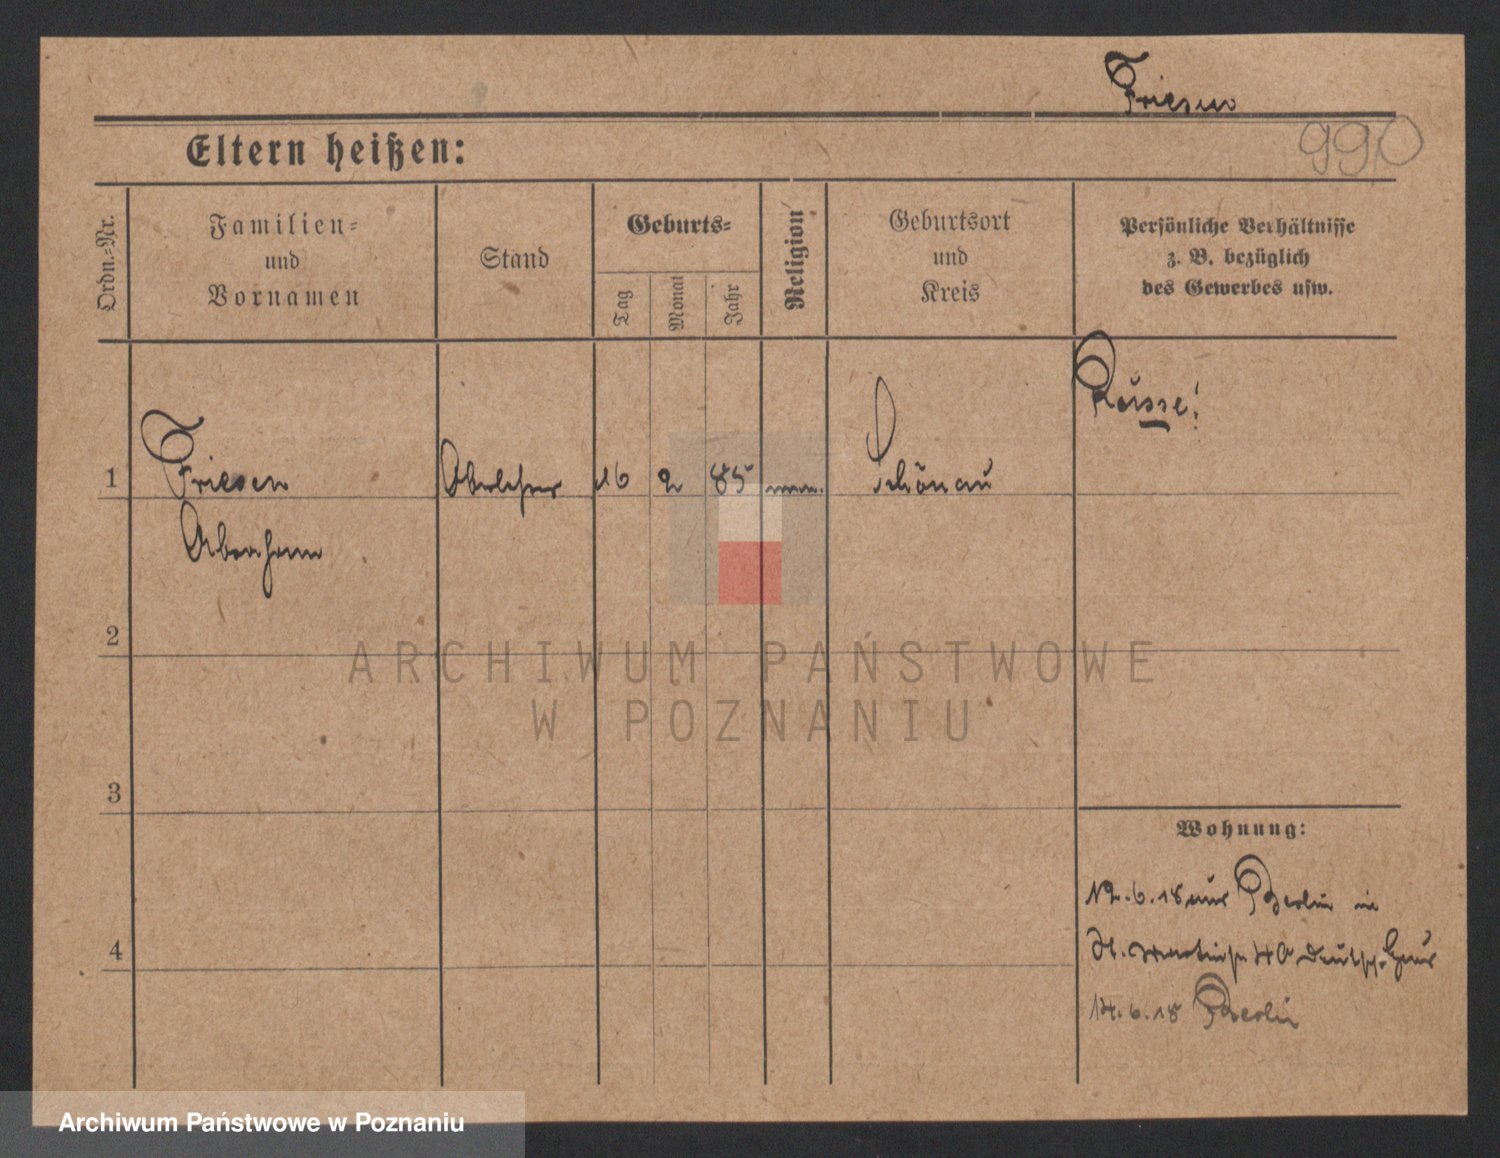 Friesen
990
Eltern heißen:
Ordn.=Nr.
Familien=
und
Vornamen
Stand
Geburts=
Tag
Monat
Jahr
Religion
Geburtsort
und
Kreis
Persönliche Verhältnisse
z. B. bezüglich
des Gewerbes usw.
Russe!
1 Friesen Oberlehrer 16 2 85 Schönau
Abraham
2
ARCHIWUM PAŃSTWOWE
W POZNANIU
3
Wohnung:
12.6.18 aus Berlin in
St. Martinstr 40 Deutsch. Haus
4
14.6.18 Berlin
Archiwum Państwowe w Poznaniu